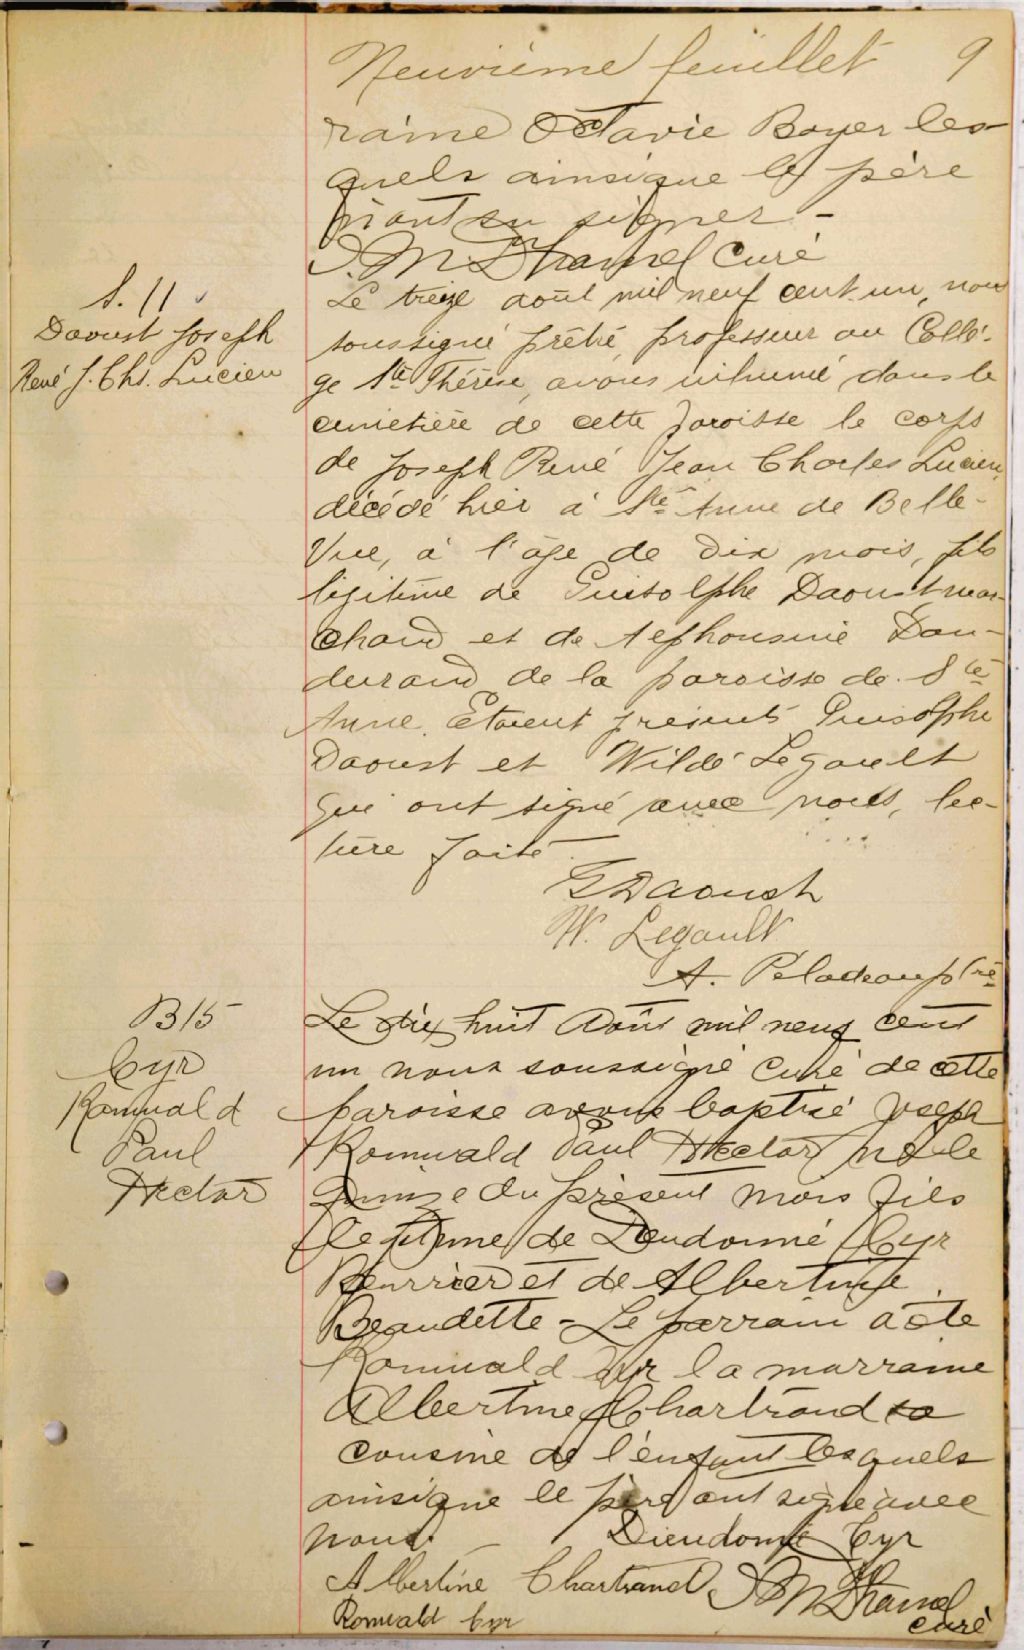 Neuvième feuillet 9
raine Octavie Boyer les-
quels ainsique le père
n'ont su signer -
J. M Curé
S. 11
Daoust Joseph
René J. Chs. Lucien
Le treize août mil neuf cent un, nous
soussigné prêtre, professeur au Collè-
ge Ste Thérèse, avons inhumé dans le
cimetière de cette paroisse le corps
de Joseph René Jean Charles Lucien,
décédé hier à Ste Anne de Belle-
Vue, à l'âge de dix mois, fils
légitime de Daoust mar-
chand et de Dan-
durand de la paroisse de Ste
Anne. Etaient présents
Daoust et Wildé Legault
qui ont signé avec nous, lec-
ture faite.
G Daoust
W. Legault
A. Péladeau ptre
B15
Cyr
Romuald
Paul
Hector
Le dix huit Août mil neuf cent
un nous soussigné curé de cette
paroisse avons baptisé Joseph
Romuald Paul Hector né le
quinze du présent mois fils
légitime de Deudonné Cyr
Beurrier et de Albertine
Beaudette - Le parrain a été
Romuald Cyr la marraine
Albertine Chartrand
cousine de l'enfant lesquels
ainsique le père ont signé avec
nous.
Dieudonné Cyr
Albertine Chartrand J M
Romuald Cyr curé